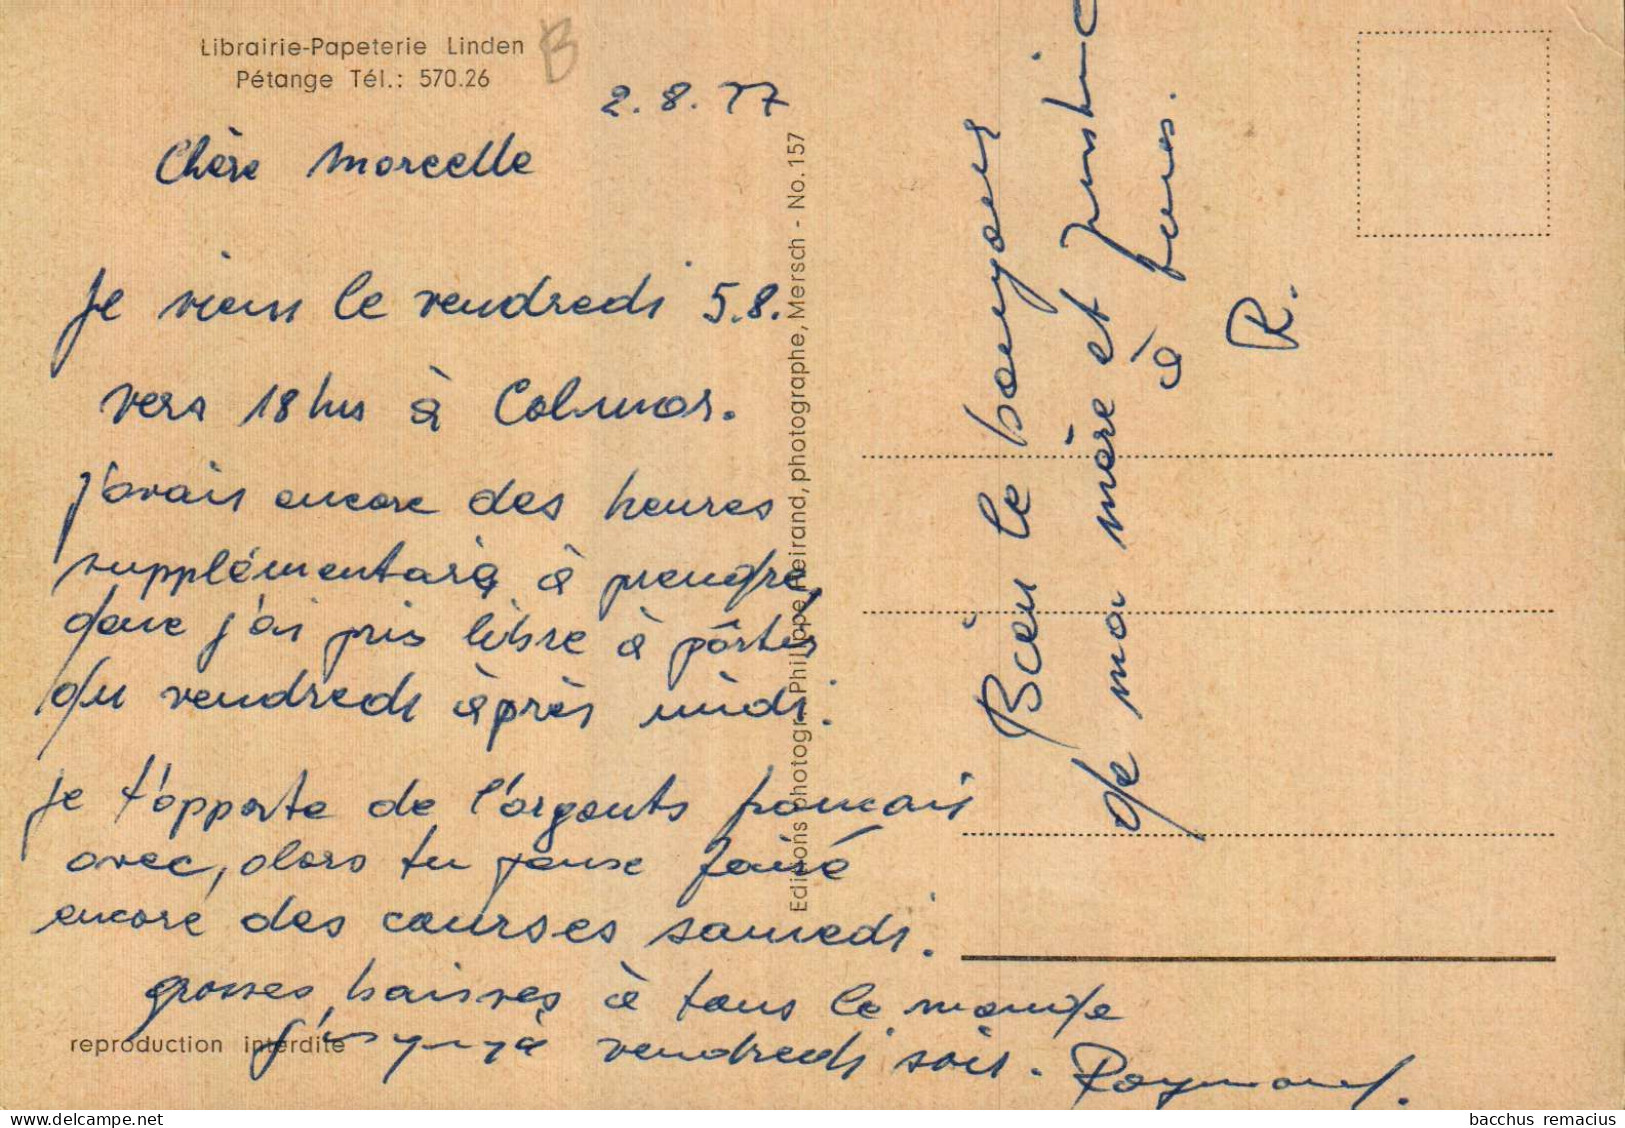 Librairie-Papeterie Linden
Pétange Tél.: 570.26
B
2.8.77
Chère Marcelle
Je viens le vendredi 5.8.
vers 18 hrs à Colmar.
j'avais encore des heures
supplémentaire à prendre,
donc j'ai pris libre à pârtir
du vendredi àprès midi.
je t'apporte de l'argents francais
avec, alors tu peuse fairé
encore des courses samedi.
grosses baisses à tous le monde
vendredi soir. Raymond.
reproduction interdite
Editions photogr. Philippe Reirand, photographe, Mersch - No. 157
Bien le bonyour
de ma mère et
à
R.
bacchus remacius